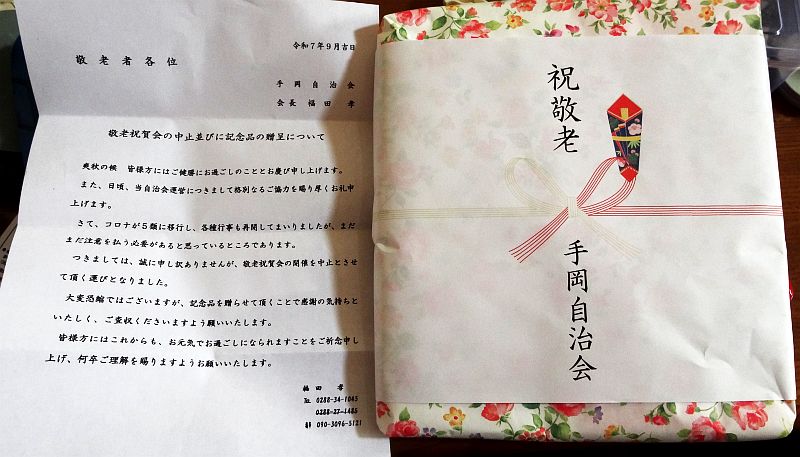 令和7年9月吉日
敬老者各位
手岡自治会
会長 福田 孝
敬老祝賀会の中止並びに記念品の贈呈について
爽秋の候 皆様方にはご健勝にお過ごしのこととお慶び申し上げます。
また、日頃、当自治会運営につきまして格別なるご協力を賜り厚くお礼申
上げます。
さて、コロナが5類に移行し、各種行事も再開してまいりましたが、まだ
まだ注意を払う必要があると思っているところであります。
つきましては、誠に申し訳ありませんが、敬老祝賀会の開催を中止とさせ
て頂く運びとなりました。
大変恐縮ではございますが、記念品を贈らせて頂くことで感謝の気持ちと
いたしく、ご査収くださいますよう願いいたします。
皆様方にはこれからも、お元気でお過ごしになられますことをご祈念申し
上げ、何卒ご理解を賜りますようお願いいたします。
福田 孝
℡ 0288-34-1045
0288-27-1485
携帯 090-3096-5121
祝敬老
手岡自治会